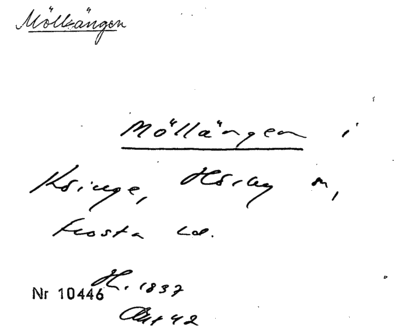 Möllängen
Möllängen i
Kringe, Hörby sn,
Frosta hd.
H. 1837
Nr 10446
Akt 42